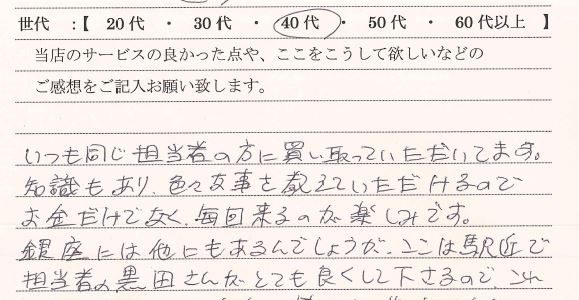 世代 :【 20代 ・ 30代 ・ 40代 ・ 50代 ・ 60代以上 】
当店のサービスの良かった点や、ここをこうして欲しいなどの
ご感想をご記入お願い致します。
いつも同じ担当者の方に買い取っていただいてます。
知識もあり、色々な事を教えていただけるので
お金だけでなく、毎回来るのが楽しみです。
銀座には他にもあるんでしょうが、ここは駅近で
担当者の黒田さんがとても良くして下さるので、これ